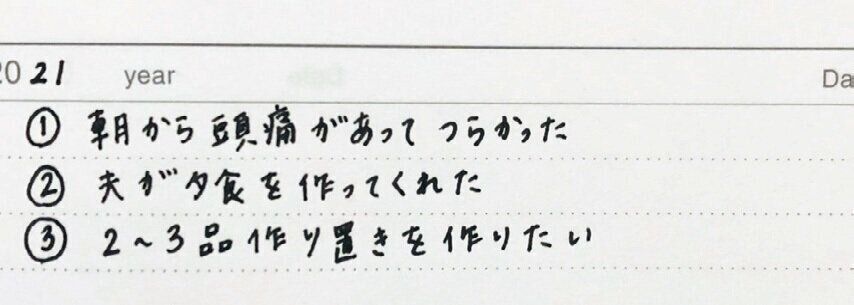 2021 year Da
① 朝から頭痛があってつらかった
② 夫が夕食を作ってくれた
③ 2~3品作り置きを作りたい